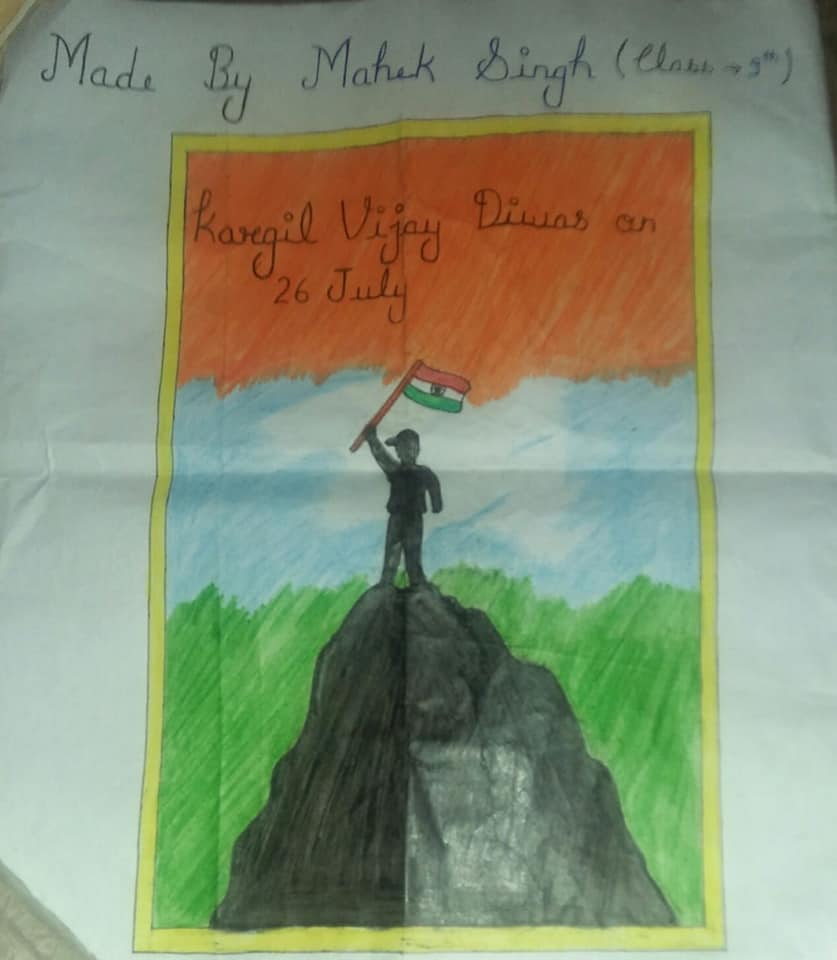 Made By Mahek Singh (Class → 9th)
Kargil Vijay Diwas on
26 July